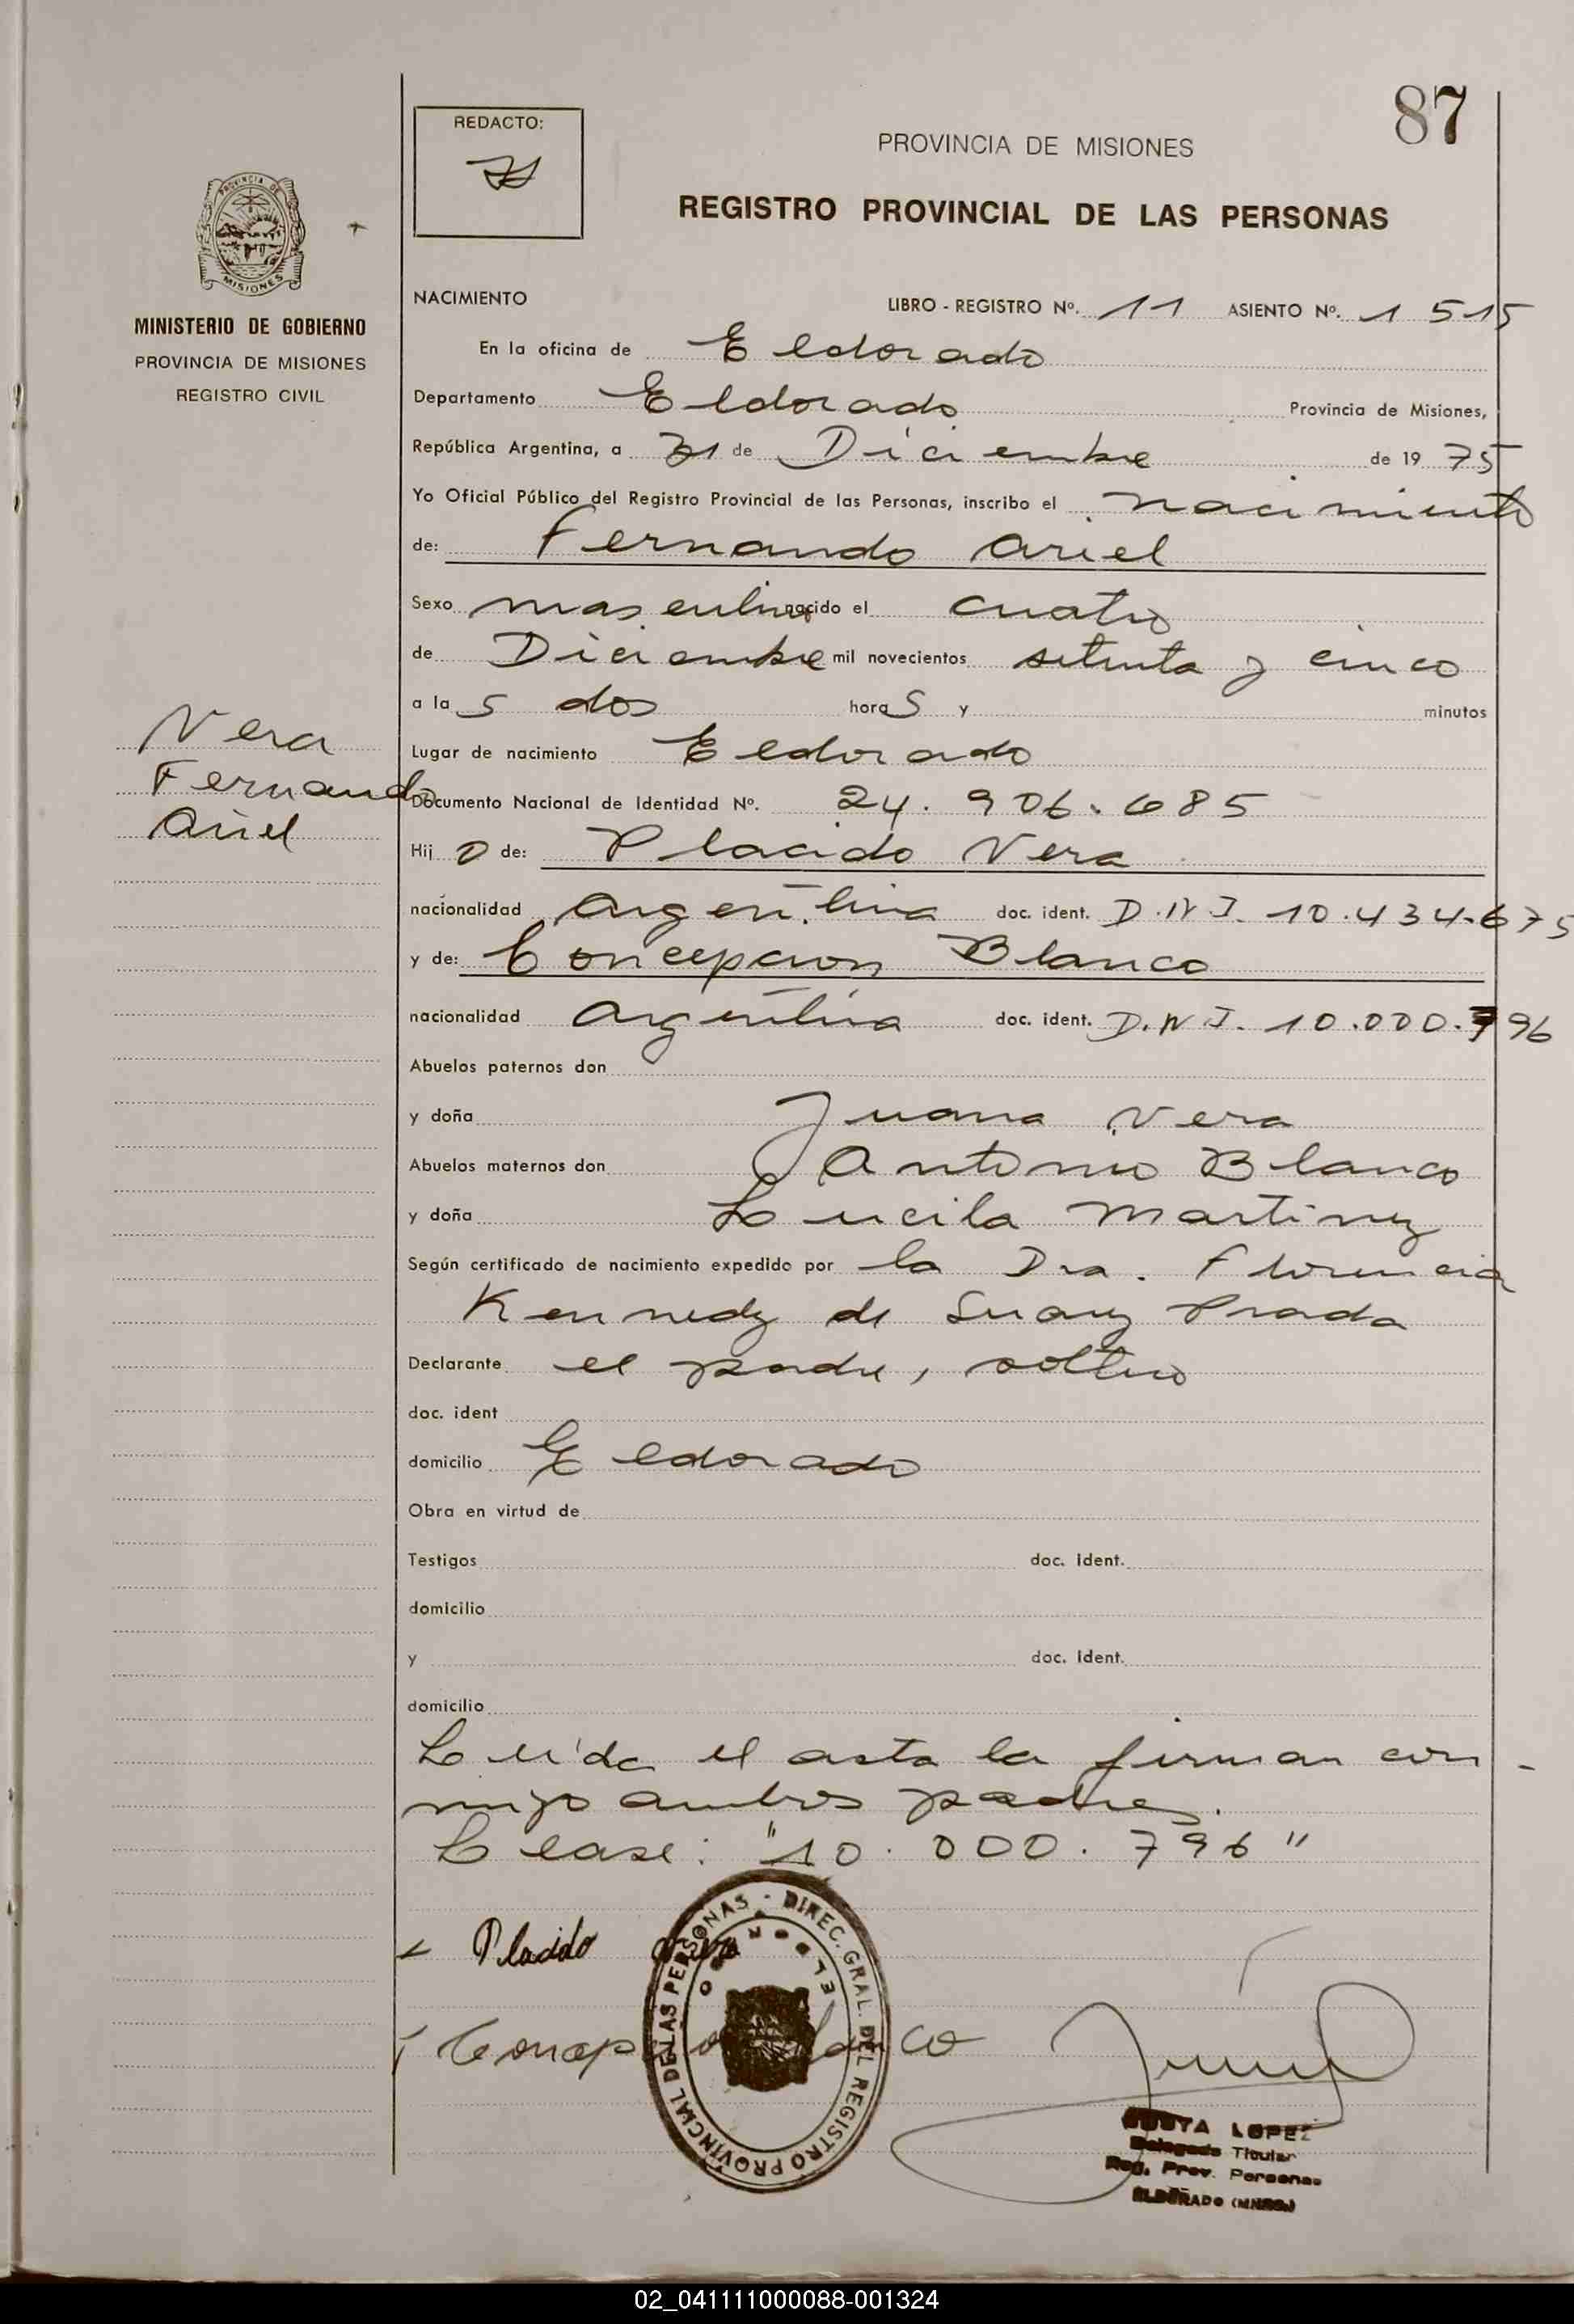 87
REDACTO:
PROVINCIA DE MISIONES
REGISTRO PROVINCIAL DE LAS PERSONAS
PROVINCIA DE
MISIONES
MINISTERIO DE GOBIERNO
PROVINCIA DE MISIONES
REGISTRO CIVIL
NACIMIENTO LIBRO - REGISTRO Nº. 11 ASIENTO Nº. 1515
En la oficina de Eldorado
Departamento Eldorado Provincia de Misiones,
República Argentina, a 31 de Diciembre de 19 75
Yo Oficial Público del Registro Provincial de las Personas, inscribo el nacimiento
de: Fernando Ariel
Sexo masculino nacido el cuatro
de Diciembre mil novecientos setenta y cinco
a la s dos hora s y minutos
Vera
Lugar de nacimiento Eldorado
Fernando
Documento Nacional de Identidad Nº. 24.906.685
Ariel
Hij o de: Placido Vera
nacionalidad argentina doc. ident. D.N.I. 10.434.675
y de: Concepcion Blanco
nacionalidad argentina doc. ident. D.N.I. 10.000.796
Abuelos paternos don
y doña Juana Vera
Abuelos maternos don Antonio Blanco
y doña Lucila Martinez
Según certificado de nacimiento expedido por la Dra. Florencia
Kennedy de Suarez Prada
Declarante el padre, soltero
doc. ident
domicilio Eldorado
Obra en virtud de
Testigos doc. ident.
domicilio
y doc. ident.
domicilio
Leída el acta la firman con-
migo ambos padres.
Lease: "10.000.796"
Placido Vera
Concepcion Blanco
DIREC. GRAL. DEL REGISTRO PROVINCIAL DE LAS PERSONAS -
ELDORADO
LOPEZ
Delegado Titular
Reg. Prov. Personas
ELDORADO (MNES.)
02_041111000088-001324